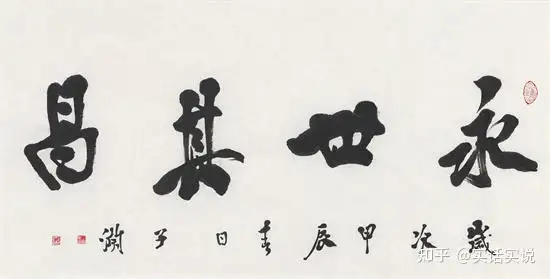 永世其昌
歲次甲辰春日子
知乎 @实话实说